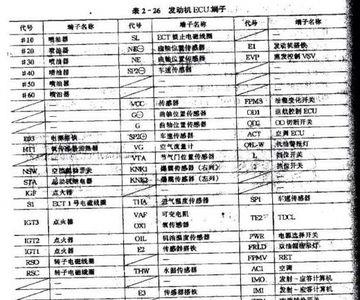 表 2-26 发动机 ECU 端子
代号 端子名称 代号 端子名称 代号 端子名称
#10 喷油器 SL ECT 锁止电磁线圈 —
#20 喷油器 NE⊖ 曲轴位置传感器 E1 发动机搭铁
#30 喷油器 NE 曲轴位置传感器 EVP 蒸发控制 VSV
#40 喷油器 SP2⊖ 车速传感器 —
#50 喷油器 — —
#60 喷油器 — —
— VCC 传感器 FPMS
— G⊖ 曲轴位置传感器 OD1 巡航控制 ECU
— G 曲轴位置传感器 OD2 OD 切断开关
E03 电源搭铁 SP2⊖ 车速传感器 ACT 空调 ECU
HT1 氧传感器加热器 VG 空气流量计 OIL-W
— VTA 节气门位置传感器 L 挡位开关
NSW KNK1 爆震传感器（右列） 2 挡位开关
STA KNK2 爆震传感器（左列） —
IGF 点火器 — —
S1 ECT 1号电磁线圈 THA 进气温度传感器 SP1 车速传感器
IGT3 点火器 VAF 可变电阻 TE2 TDCL
OX1 氧传感器
IGT2 点火器 OIL 机油温度传感器 PWR 电源选择开关
IGT1 点火器 E2 传感器搭铁 FRLD
RSO 转子电磁线圈 — FPMV RET
RSC 转子电磁线圈 THW 水温传感器 AC1 空调
— — IMO 发射-应答计算机
— E3 传感器搭铁 IMI 发射-应答计算机